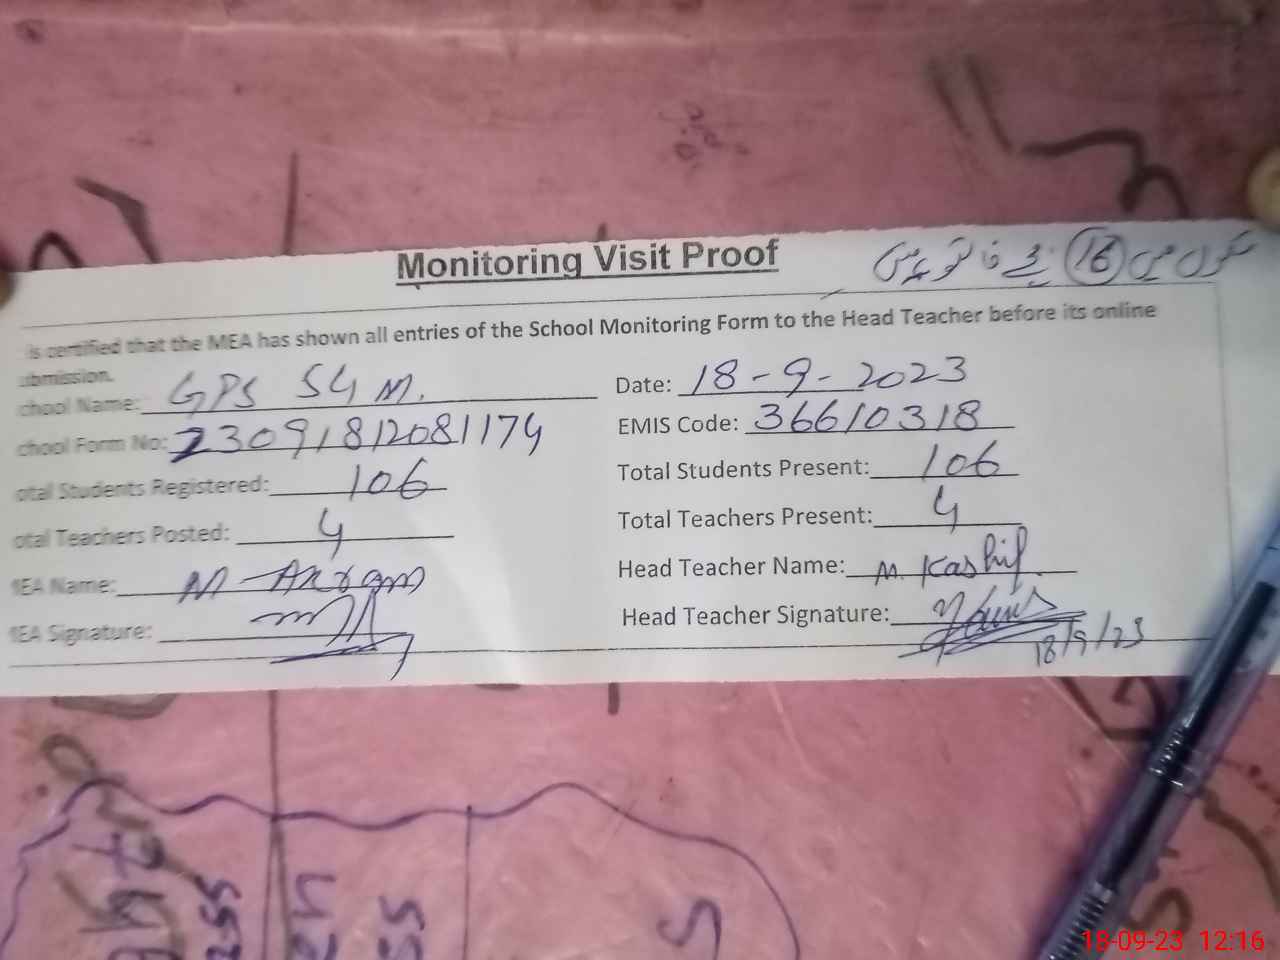 Monitoring Visit Proof
16
is certified that the MEA has shown all entries of the School Monitoring Form to the Head Teacher before its online
ubmission.
chool Name: GPS 54 M. Date: 18-9-2023
chool Form No: 23091812081174 EMIS Code: 36610318
otal Students Registered: 106 Total Students Present: 106
otal Teachers Posted: 4 Total Teachers Present: 4
MEA Name: M-Akram Head Teacher Name: M. Kashif
MEA Signature: Head Teacher Signature:
18/9/23
18-09-23 12:16